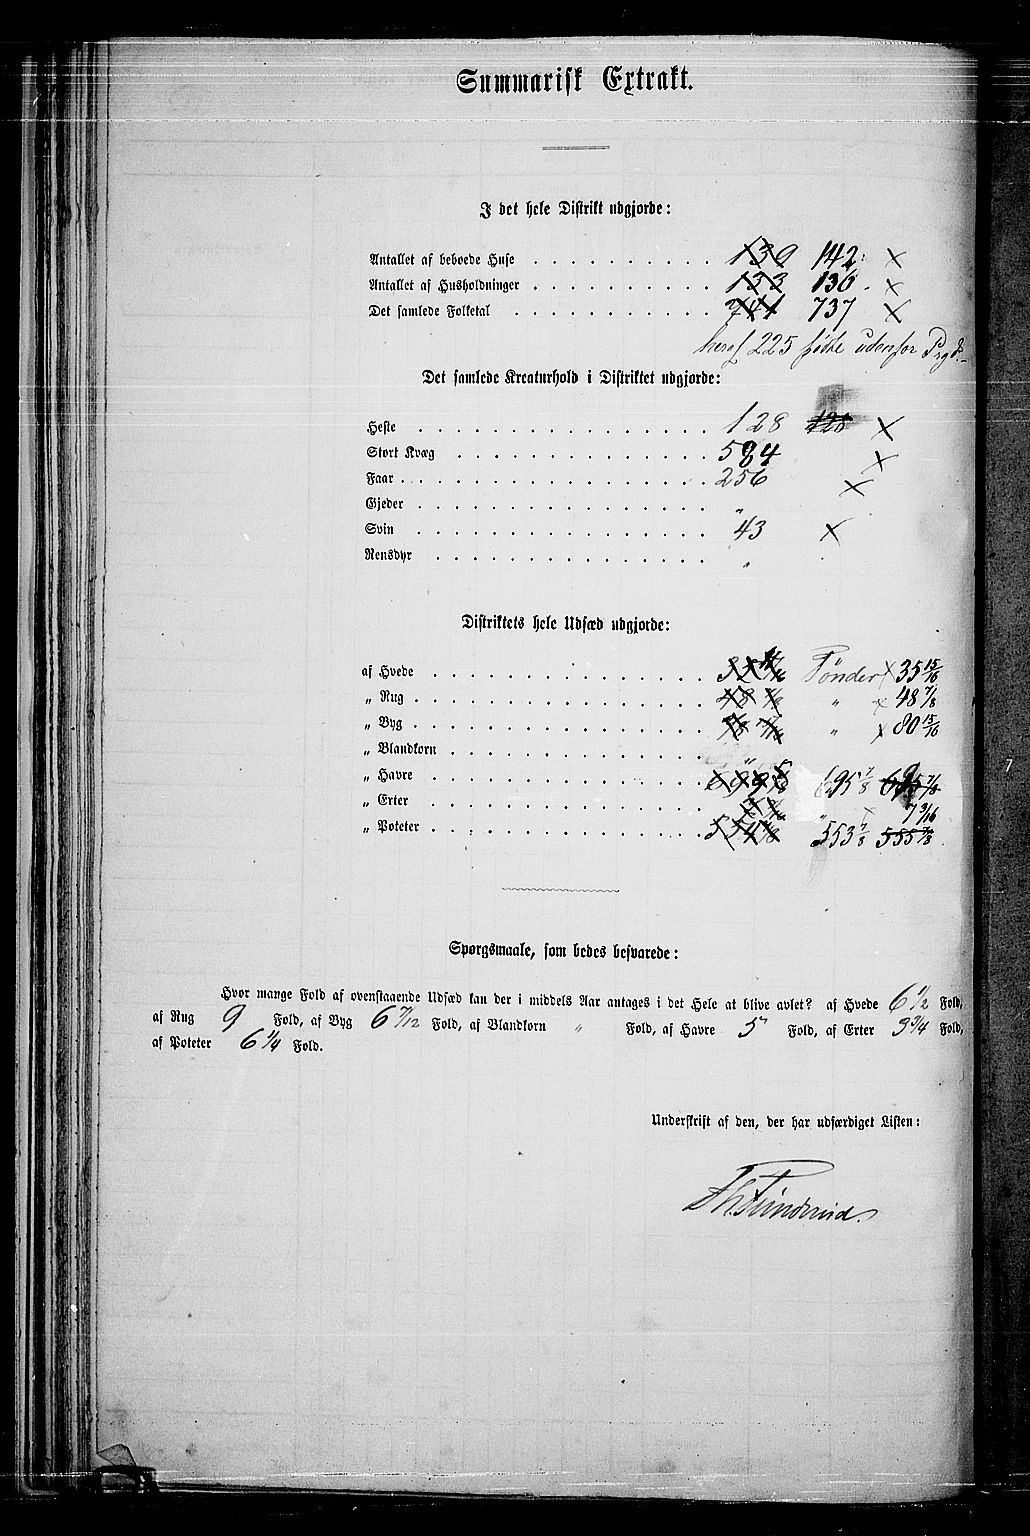 Summarisk Extrakt.
I det hele Distrikt udgjorde:
Antallet af beboede Huse . . . . . . . . . . 139 142 ×
Antallet af Husholdninger . . . . . . . . . . 133 136 ×
Det samlede Folketal . . . . . . . . . . . 741 737 ×
heraf 225 fødte udenfor Prgd.
Det samlede Kreaturhold i Distriktet udgjorde:
Heste . . . . . . . . . . . . . . . . 128 128 ×
Stort Kvæg . . . . . . . . . . . . . . 584 ×
Faar . . . . . . . . . . . . . . . . . 256 ×
Gjeder . . . . . . . . . . . . . . . . "
Svin . . . . . . . . . . . . . . . . 43 ×
Rensdyr . . . . . . . . . . . . . . . "
Distriktets hele Udsæd udgjorde:
af Hvede . . . . . . . . . . . . . . . Tønder × 35 15/16
„ Rug . . . . . . . . . . . . . . . . 48 7/8 " × 48 7/8
„ Byg . . . . . . . . . . . . . . . . " × 80 15/16
„ Blandkorn . . . . . . . . . . . . . . "
„ Havre . . . . . . . . . . . . . . . . 695 7/8 695 7/8
„ Erter . . . . . . . . . . . . . . . . " × 7 3/16
„ Poteter . . . . . . . . . . . . . . . 554 7/8 553 7/8 555 7/8
Spørgsmaale, som bedes besvarede:
Hvor mange Fold af ovenstaaende Udsæd kan der i middels Aar antages i det Hele at blive avlet? af Hvede 6 1/2 Fold,
af Rug 9 Fold, af Byg 6 7/12 Fold, af Blandkorn " Fold, af Havre 5 Fold, af Erter 3 3/4 Fold,
af Poteter 6 1/4 Fold.
Underskrift af den, der har udfærdiget Listen: